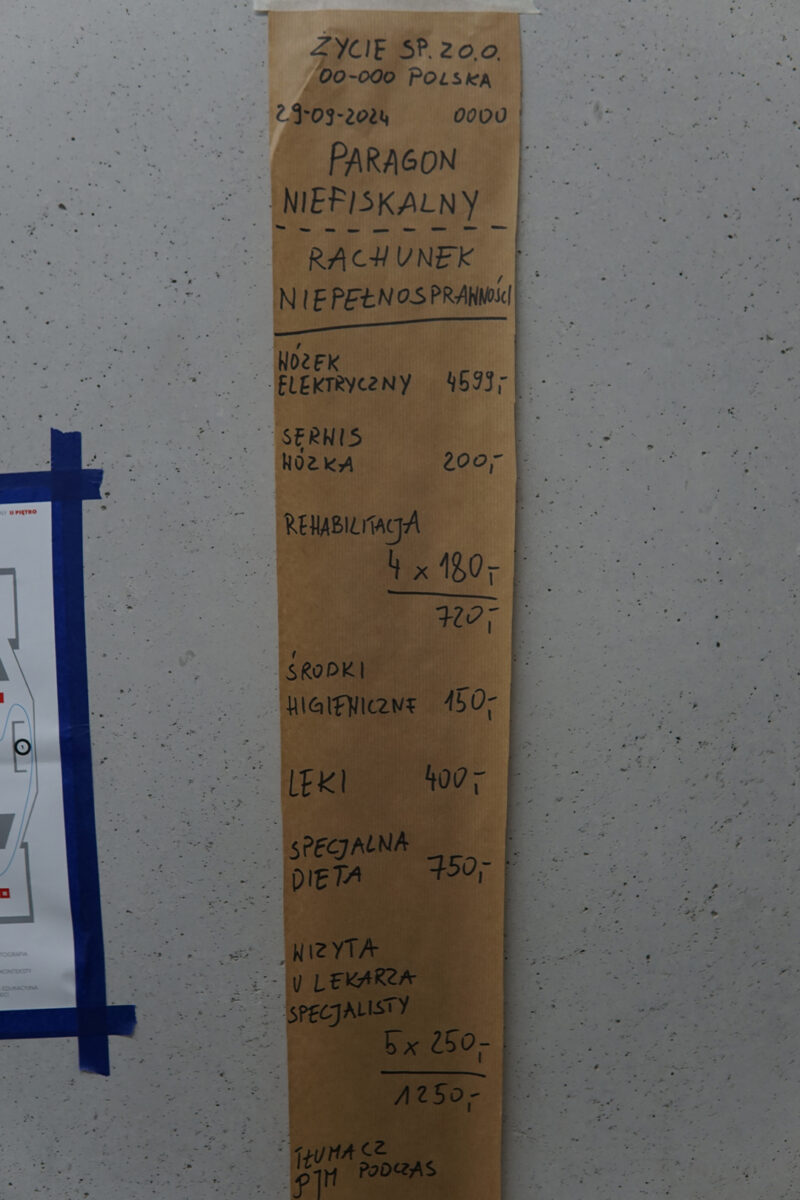 ŻYCIE SP. Z O.O.
00-000 POLSKA
29-09-2024 0000
PARAGON
NIEFISKALNY
RACHUNEK
NIEPEŁNOSPRAWNOŚCI
WÓZEK
ELEKTRYCZNY 4599,-
SERWIS
WÓZKA 200,-
REHABILITACJA
4 x 180,-
720,-
ŚRODKI
HIGIENICZNE 150,-
LEKI 400,-
SPECJALNA
DIETA 750,-
WIZYTA
U LEKARZA
SPECJALISTY
5 x 250,-
1250,-
TŁUMACZ
PJM PODCZAS
II PIĘTRO